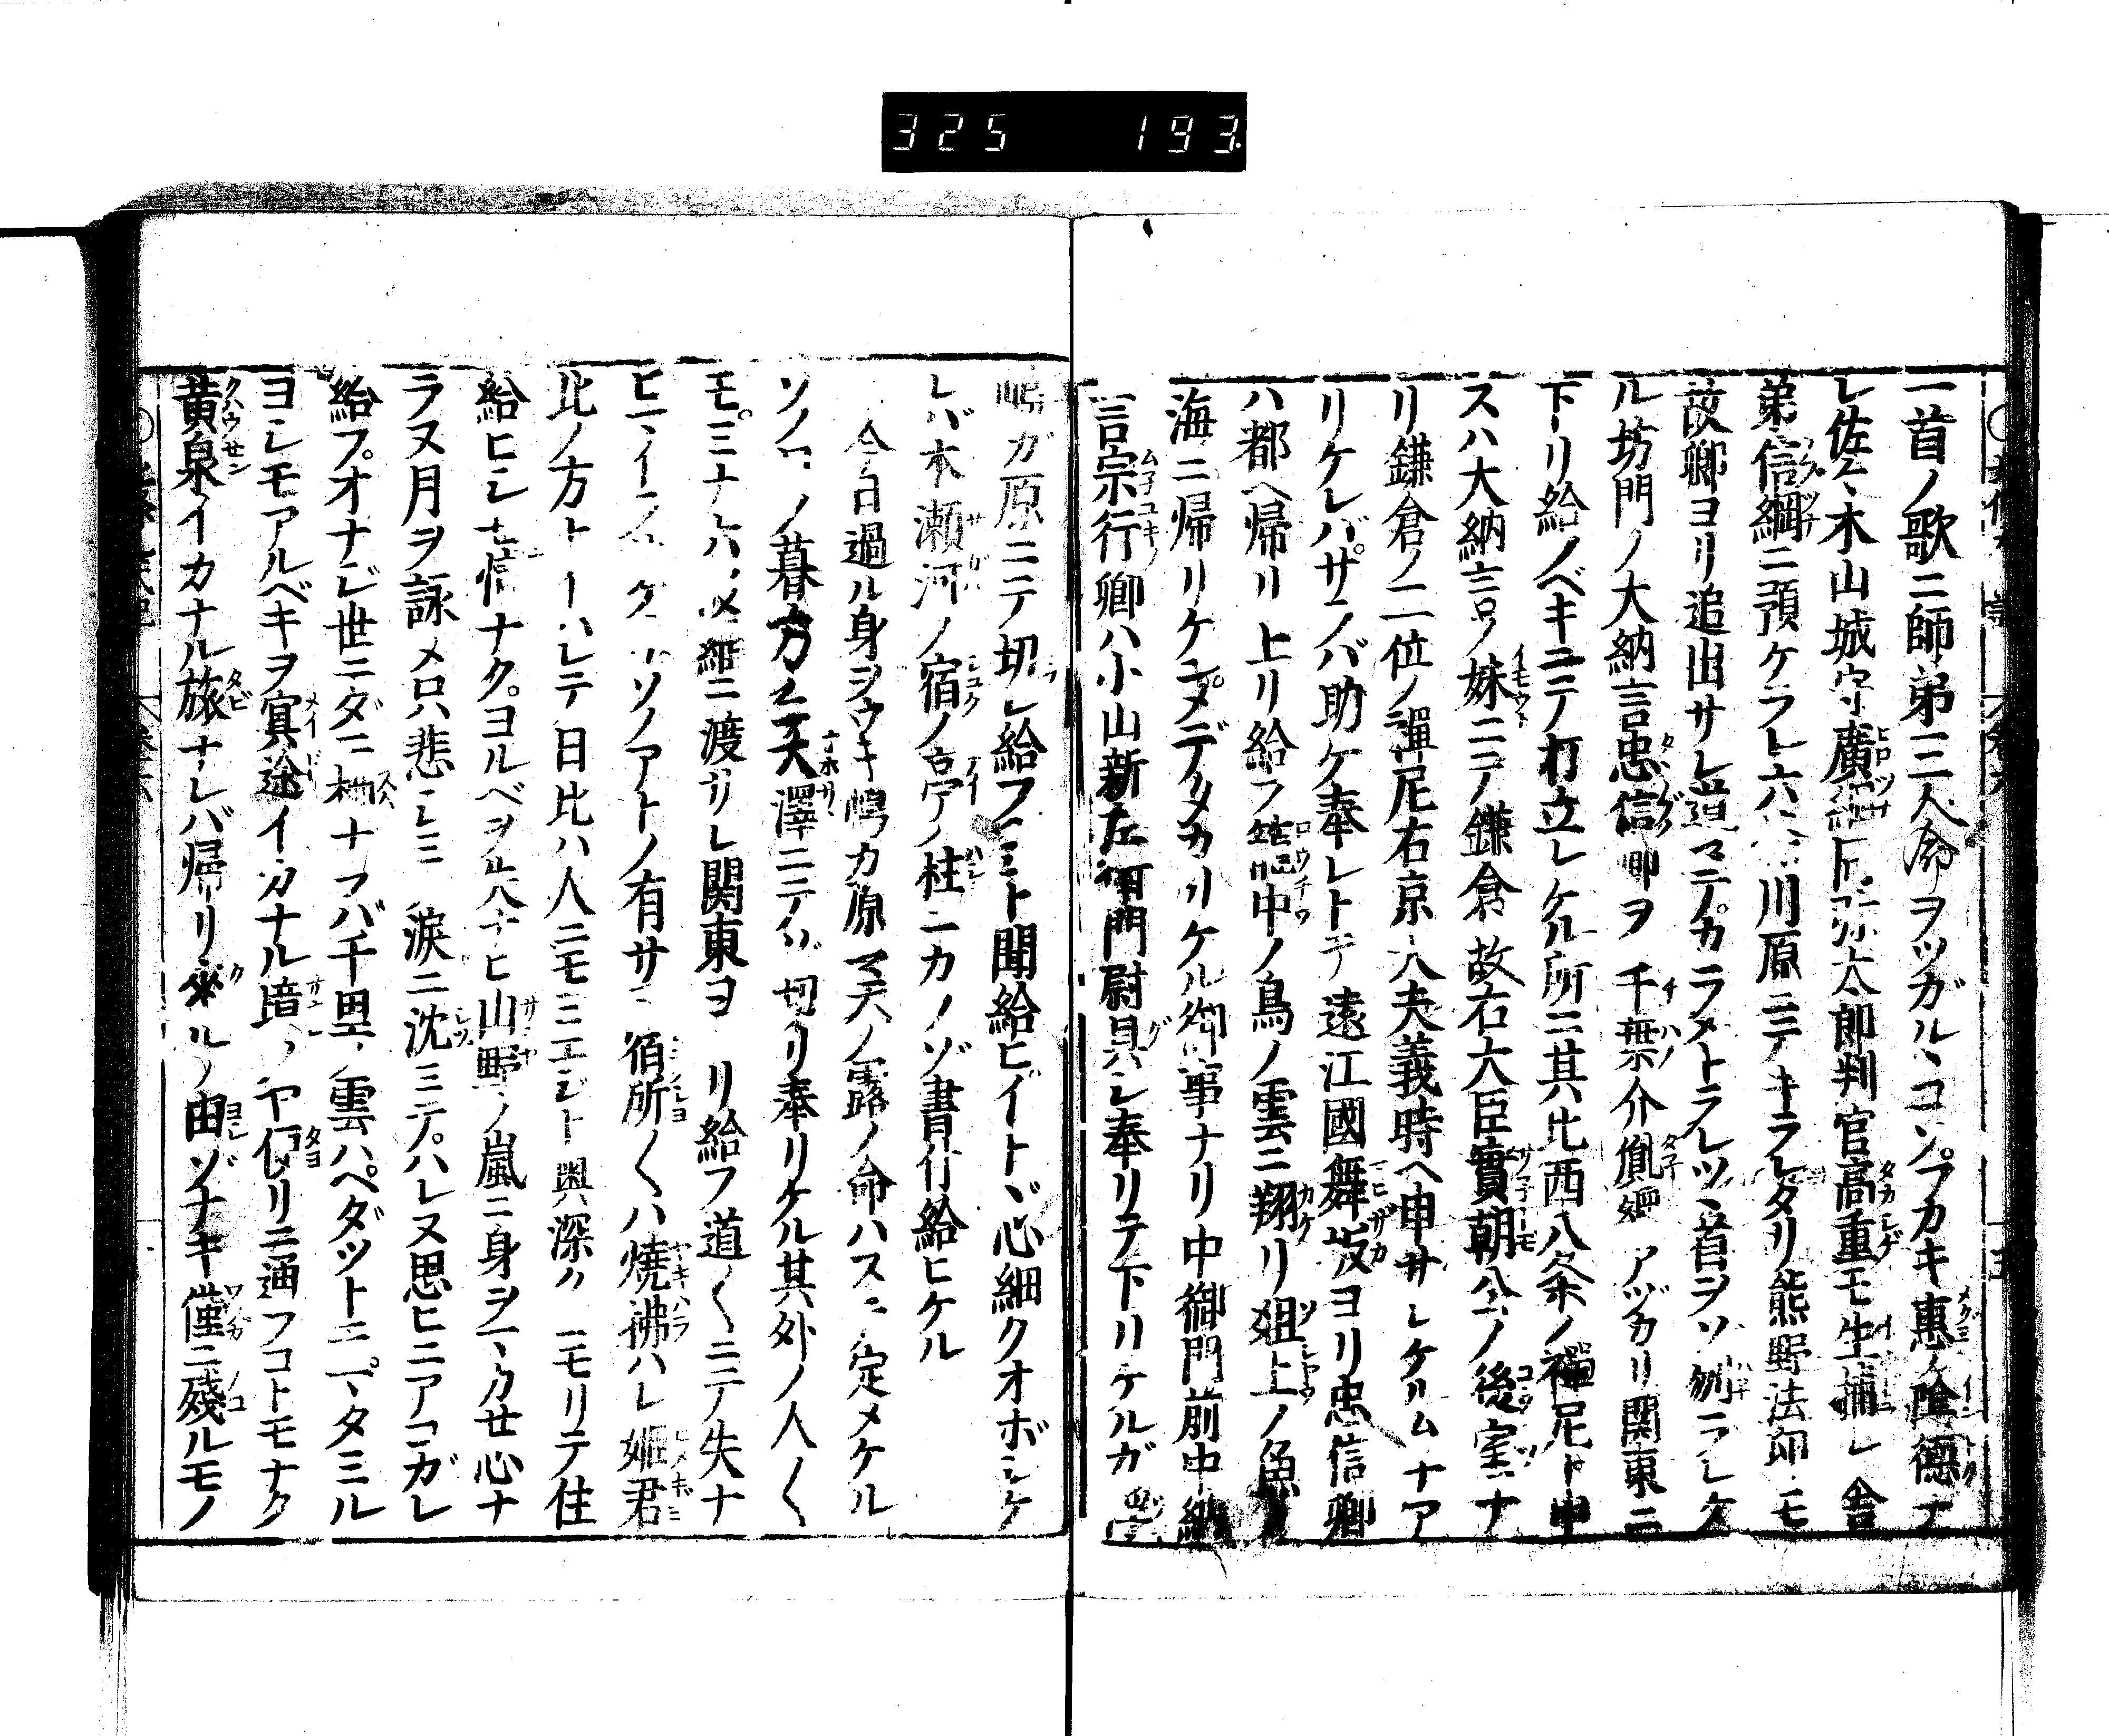 325 193
一首ノ歌ニ師弟三人命ヲツガルヽコソフカキ惠ノ陰徳ナ
レ佐々木山城守廣綱同弥太郎判官高重モ生捕レ舎
弟信綱ニ預ケラレ六条川原ニテキラレタリ熊野法印モ
故郷ヨリ追出サレ道ニテカラメトラレツヽ首ヲソ刎ラレケ
ル坊門ノ大納言忠信卿ヲ千葉介胤綱アヅカリ関東ニ
下リ給ノベキニテ打立レケル所ニ其比西八条ノ禪尼ト申
スハ大納言ノ妹ニテ鎌倉故右大臣實朝公ノ後室ナ
リ鎌倉ノ二位ノ禪尼右京大夫義時ヘ申サレケルムナア
リケレバサラバ助ケ奉レトテ遠江國舞坂ヨリ忠信卿
ハ都ヘ帰リ上リ給フ籠中ノ鳥ノ雲ニ翔リ俎上ノ魚ノ
海ニ帰リケンメデタカリケル御事ナリ中御門前中納
言宗行卿ハ小山新左衛門尉具シ奉リテ下リケルガ
嶋ガ原ニテ切レ給フヘシト聞給ヒイトヾ心細クオボシケ
レバ木瀬河ノ宿ノ亭ノ柱ニカクゾ書付給ヒケル
今日過ル身ヲウキ嶋カ原マテ天ノ露ノ命ハスニ定メケル
ソノ日ノ暮方ニ天澤ニテゾ切リ奉リケル其外ノ人〱
モミナ六波羅ニ渡サレ関東ヨリ給フ道〱ニテ失ナ
ヒマイラスケリソノアトノ有サマ宿所〱ハ焼拂ハレ姫君
北ノ方トイハレテ日比ハ人ニモミエジト奥深クコモリテ住
給ヒシモ情ナクヨルベヲ失ナヒ山野ノ嵐ニ身ヲマカセ心ナ
ラヌ月ヲ詠メ只悲シミ涙ニ沈ミテハレヌ思ヒニアコガレ
給フオナジ世ニダニ栖ナラバ千里ノ雲ハヘダツトニモマタミル
ヨシモアルベキヲ冥途イカナル境ソヤ便リニ通フコトモナク
黄泉イカナル旅ナレバ帰リ來ルノ由ゾナキ僅ニ殘ルモノ